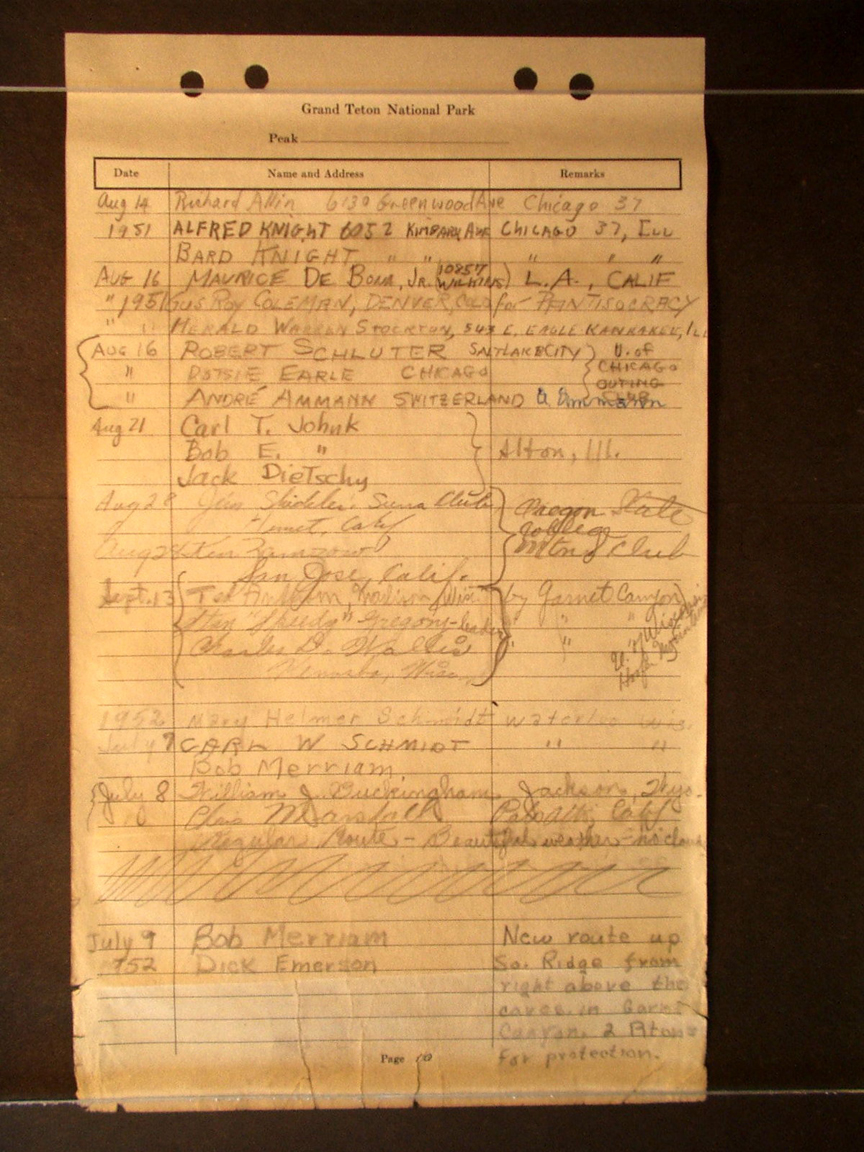 Grand Teton National Park
Peak
Date Name and Address Remarks
Aug 14 Richard Allin 6130 Greenwood Ave Chicago 37
1951 ALFRED KNIGHT 6052 KIMBARK AVE CHICAGO 37, ILL
BARD KNIGHT " " " "
AUG 16 MAURICE DE BOM, JR. (10857 WILKINS) L.A., CALIF
" 1951 GUS ROY COLEMAN, DENVER, COLO for PANTISOCRACY
" " HERALD WARREN STOCKTON, 543 E. EAGLE KANKAKEE, ILL
AUG 16 ROBERT SCHLUTER SALT LAKE CITY U. of
" DOTSIE EARLE CHICAGO CHICAGO
OUTING
" ANDRÉ AMMANN SWITZERLAND A. Ammann
Aug 21 Carl T. Johnk
Bob E. " Alton, Ill.
Jack Dietschy
Aug 28 Jim Sierra Club Oregon State
Hemet, Calif College
Aug 28 Ken Mtn Club
San Jose, Calif.
Sept. 13 Ted Madison, Wis by Garnet Canyon
Stan "Speedy" Gregory - leader " "
Charles D. Wallis " "
Kenosha, Wisc.
1952 Mary Helmer Schmidt Waterloo Wis
July 7 CARL W SCHMIDT " "
Bob Merriam
July 8 William J. Buckingham, Jackson, Wyo.
Marshall Palo Alto, Calif
Regular Route - Beautiful weather - no clouds
July 9 Bob Merriam New route up
1952 Dick Emerson So. Ridge from
right above the
caves in Garnet
Canyon. 2 Pitons
for protection.
Page 10